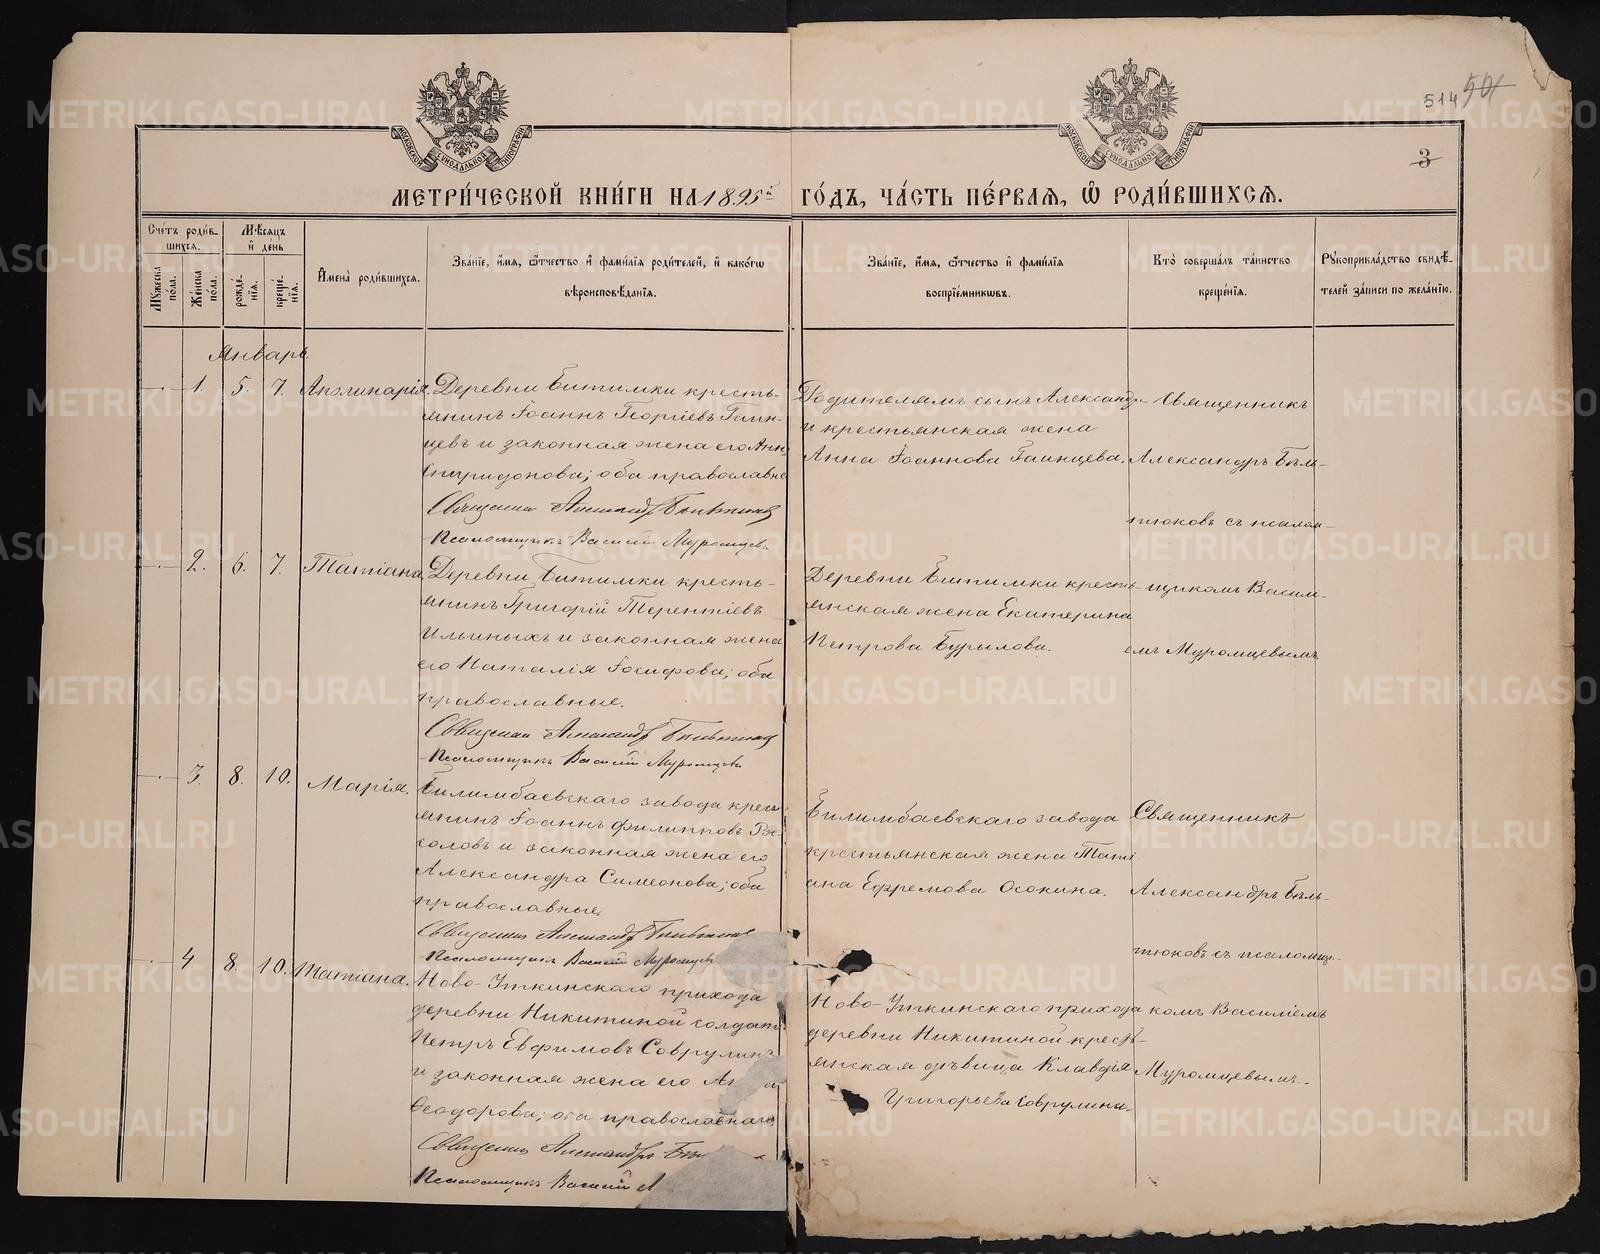 514 501
3
МЕТРИ́ЧЕСКОЙ КНИ́ГИ НА 1895й ГО́ДЪ, ЧА́СТЬ ПЕ́РВАЯ, Ѽ РОДИ́ВШИХСѦ.
Сче́тъ роди́вшихся.
Мѣ́сяцъ и́ де́нь
Му́жеска по́ла.
Же́нска по́ла.
рожде́нія.
креще́нія.
И́мена̀ роди́вшихся.
Зва́нїе, и́мя, ѻ́тчество и́ фами́лїя роди́телей, и́ како́гѡ вѣроисповѣ́данїя.
Зва́нїе, и́мя, ѻ́тчество и́ фами́лїя воспрїе́мникѡвъ.
Кто̀ соверша́лъ та́инство креще́нїя.
Рꙋкоприкла́дство свидѣ́телей за́писи по жела́нїю.
Январь.
1. 5. 7. Аполинарія.
Деревни Битимки кресть-
янинъ Іоаннъ Георгіевъ Гаин-
цевъ и законная жена его Анн
Спиридонова; оба православн
Священникъ Александръ
Псаломщикъ Василій Муромцевъ
Родителямъ сынъ Александръ
и крестьянская жена
Анна Іоаннова Гаинцева.
Священникъ
Александръ Бѣль-
тюковъ съ псалом-
щикомъ Васил-
емъ Муромцевымъ
2. 6. 7. Татіана
Деревни Битимки кресть-
янинъ Григорій Терентіевъ
Ильиныхъ и законная жена
его Наталія Іосифова; оба
православные.
Священникъ Александръ
Псаломщикъ Василій Муромцевъ
Деревни Битимки кресть-
янская жена Екатерина
Петрова Бурылова.
3. 8. 10. Марія.
Билимбаевскаго завода крест
янинъ Іоаннъ Филипповъ Рас-
соловъ и законная жена его
Александра Симеонова; оба
православные.
Священникъ Александръ
Псаломщикъ Василій Муромцевъ
Билимбаевскаго завода
крестьянская жена Тати
ана Ефремова Осокина.
Священникъ
Александръ Бѣль-
тюковъ съ псаломщи-
комъ Василіемъ
Муромцевымъ.
4. 8. 10. Татіана.
Ново-Уткинскаго прихода
деревни Никитиной солдатъ
Петръ Евфимовъ Соврулинъ
и законная жена его
Ѳеодорова; оба православнаго
Священникъ Александръ
Псаломщикъ Василій
Ново-Уткинскаго прихода
деревни Никитиной кресть-
янская дѣвица Клавдія
Григорьева Соврулина.